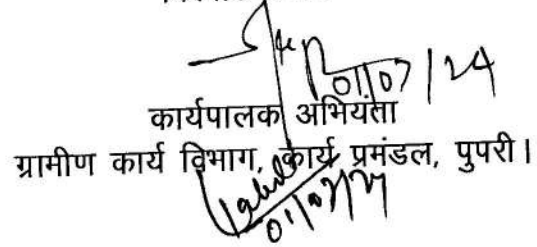 01/07/24
कार्यपालक अभियंता
ग्रामीण कार्य विभाग, कार्य प्रमंडल, पुपरी।
01/07/24